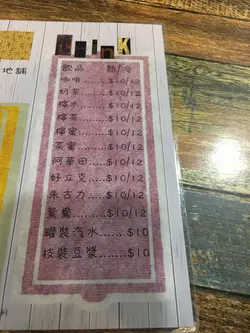 Drink
地舖
飲品 熱/冷
咖啡......$10/12
奶茶......$10/12
檸水......$10/12
檸茶......$10/12
檸蜜......$10/12
茶蜜......$10/12
阿華田.....$10/12
好立克.....$10/12
朱古力.....$10/12
鴛鴦......$10/12
罐裝汽水....$10
枝裝豆漿....$10